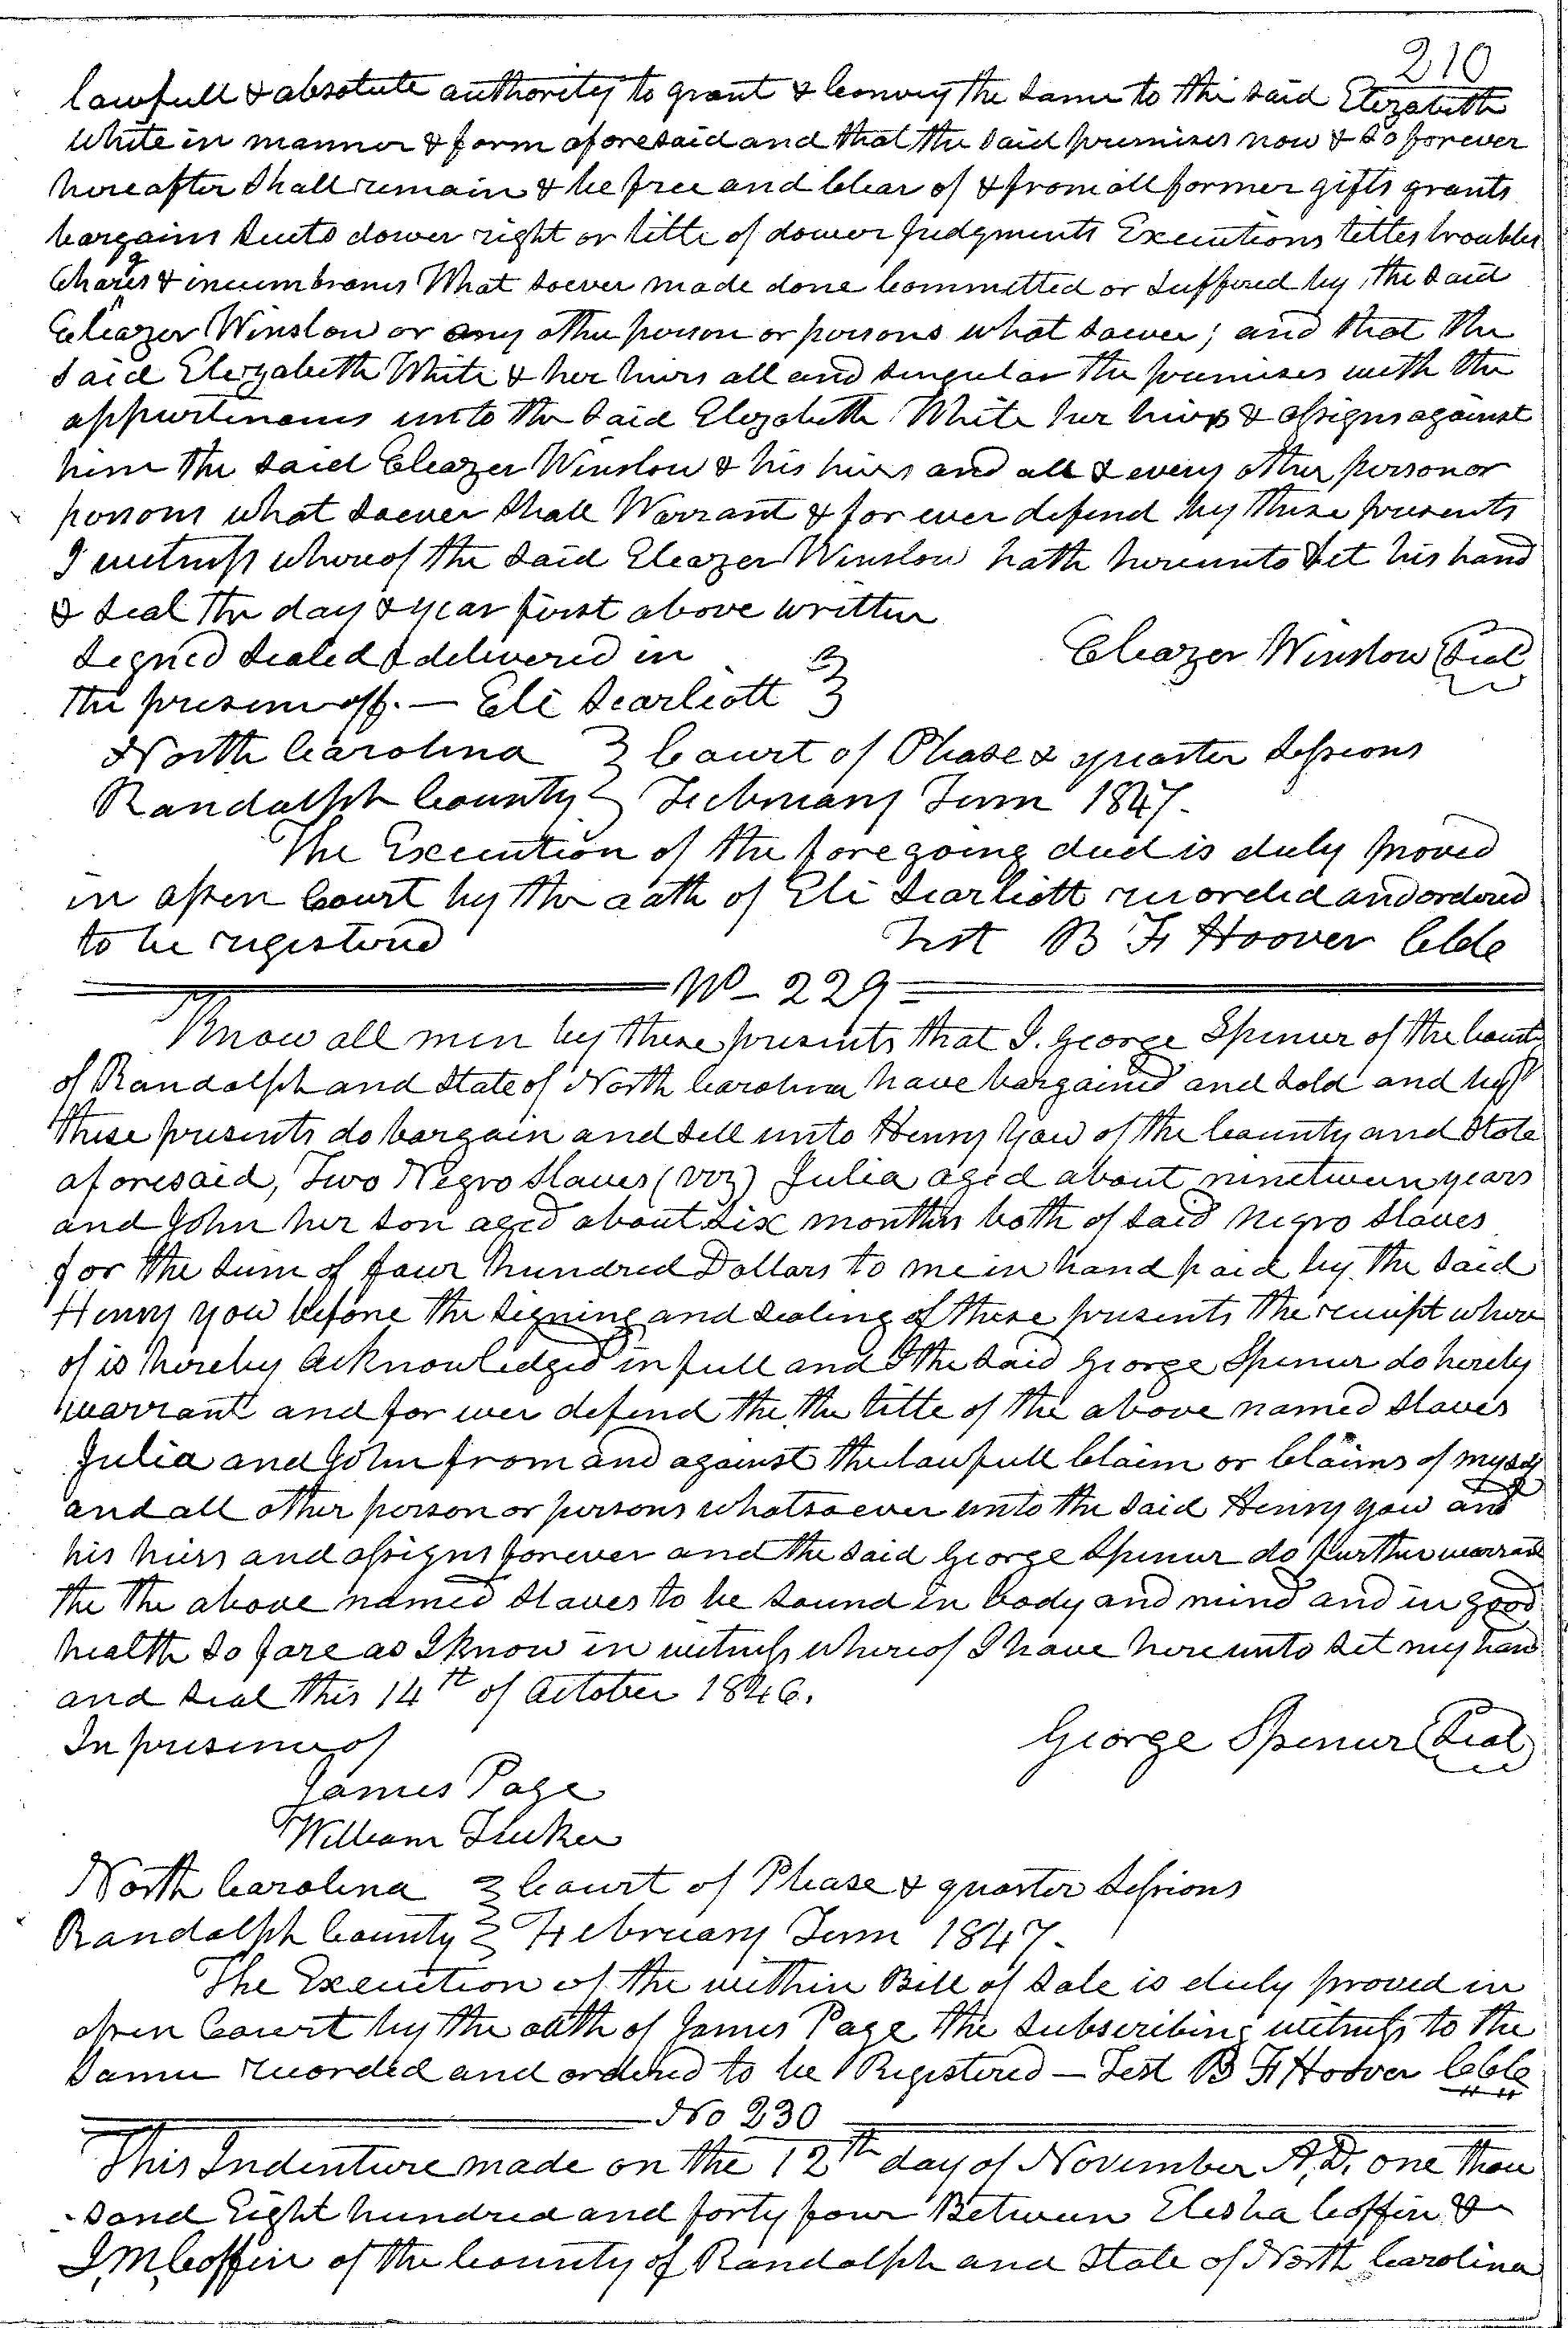 210
lawfull & absolute authority to grant & convey the same to the said Elizabeth
White in manner & form aforesaid and that the said premises now & so forever
hereafter shall remain & be free and clear of & from all former gifts grants
bargains suits dower right or title of dower Judgments Executions titles troubles
Charges & incumbrances What soever made done committed or suffered by the said
Eleazer Winslow or any other person or persons what soever; and that the
said Elizabeth White & her heirs all and singular the premises with the
appurtinances unto the said Elizabeth White her heirs & assigns against
him the said Eleazer Winslow & his heirs and all & every other person or
persons what soever shall Warrant & for ever defend by these presents
I witness whereof the said Eleazer Winslow hath hereunto set his hand
& seal the day & year first above written
Signed sealed & delivered in
Eleazer Winslow Seal
the presence off. — Eli Scarlott
North Carolina } Court of Please & quarter Sessions
Randolph County } February Term 1847.
The Execution of the foregoing deed is duly proved
in open Court by the oath of Eli Scarlott recorded and ordered
to be registered Test B F Hoover Clk
No - 229
Know all men by these presents that I. George Spencer of the County
of Randolph and State of North Carolina have bargained and sold and by
these presents do bargain and sell unto Henry Yow of the County and State
aforesaid, Two Negro Slaves (viz) Julia aged about nineteen years
and John her son aged about six months both of said negro slaves
for the sum of four hundred Dollars to me in hand paid by the said
Henry yow before the signing and sealing of these presents the receipt where
of is hereby acknowledged in full and I the said George Spencer do hereby
warrant and for ever defend the the title of the above named slaves
Julia and John from and against the lawfull claim or claims of myself
and all other person or persons whatsoever unto the said Henry yow and
his heirs and assigns forever and the said George Spencer do further warrant
the the above named slaves to be sound in body and mind and in good
health so fare as I know in witness whereof I have hereunto set my hand
and seal this 14th of October 1846.
In presence of
George Spencer Seal
James Page
William Tucker
North Carolina } Court of Please & quarter Sessions
Randolph County } February Term 1847-
The Execution of the within Bill of Sale is duly proved in
open Court by the oath of James Page the subscribing witness to the
same recorded and ordered to be Registered — Test B F Hoover Clk
No 230
This Indenture made on the 12th day of November A,D, one thou
-sand Eight hundred and forty four Between Elisha Coffin &
J, M, Coffin of the County of Randolph and State of North Carolina